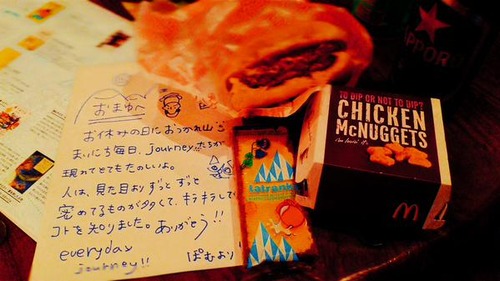 おまゆへ
お休みの日におつかれ山
まいにち毎日、journeyたちが
現わてきてもたのしいよ。
人は、見た目よりずっとずっと
秘めてるものが多くて、キラキラして
コトを知りました。ありがとう!!
everyday
journey!!
ぱむより
latrank
TO DIP OR NOT TO DIP?
CHICKEN
McNUGGETS
i'm lovin' it
SAPPORO